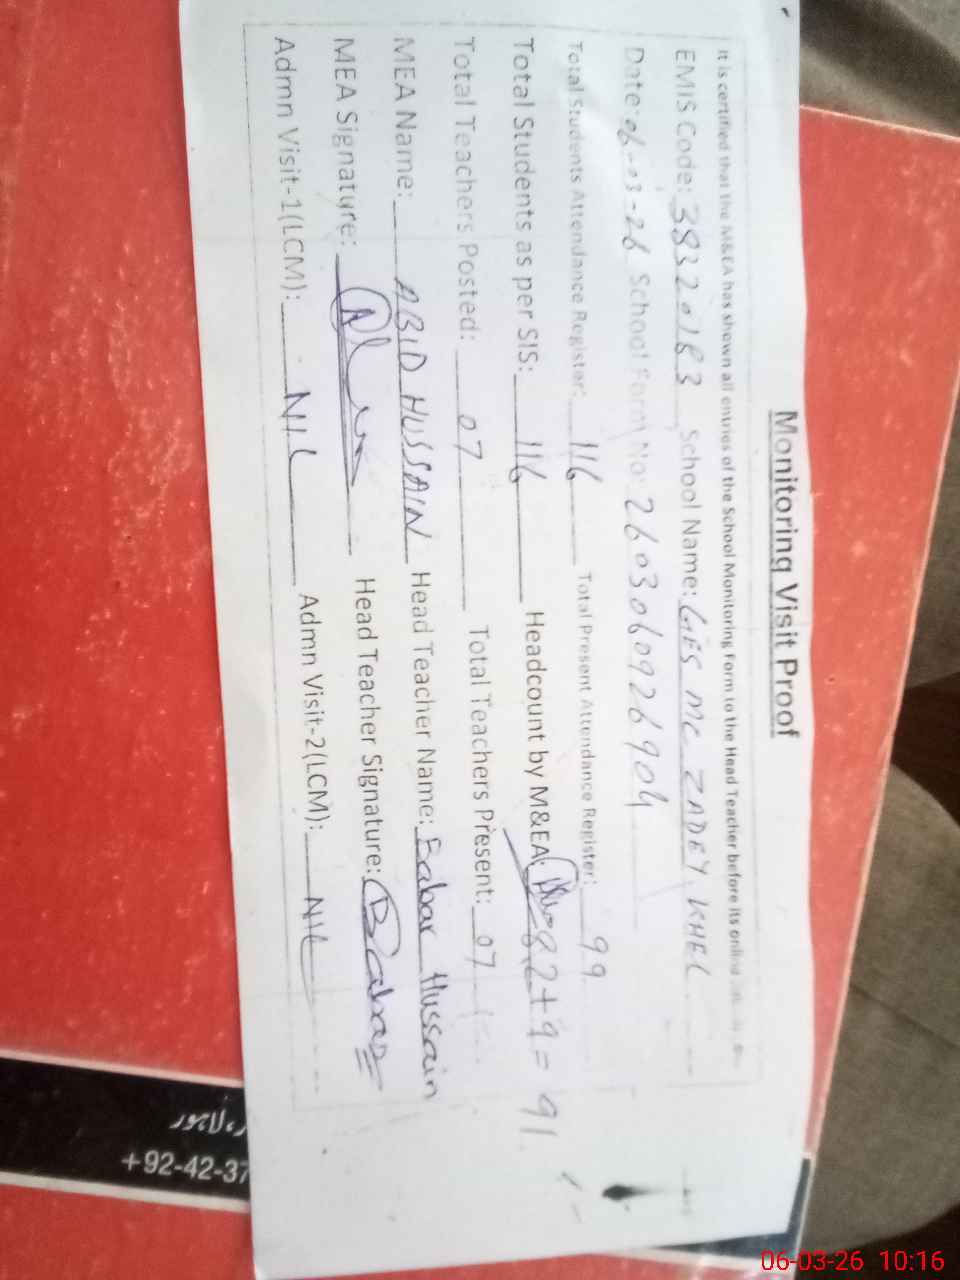 Monitoring Visit Proof
It is certified that the M&EA has shown all entries of the School Monitoring Form to the Head Teacher before its online
EMIS Code: 38320183 School Name: GES MC ZADEY KHEL
Date: 06-03-26 School Form No: 2603060926904
Total Students Attendance Register: 116 Total Present Attendance Register: 99
Total Students as per SIS: 116 Headcount by M&EA: 82+9= 91
Total Teachers Posted: 07 Total Teachers Present: 07
MEA Name: ABID HUSSAIN Head Teacher Name: Babar Hussain
MEA Signature: Head Teacher Signature: Babar
Admn Visit-1(LCM): NIL Admn Visit-2(LCM): NIL
لاہور
+92-42-37
06-03-26 10:16